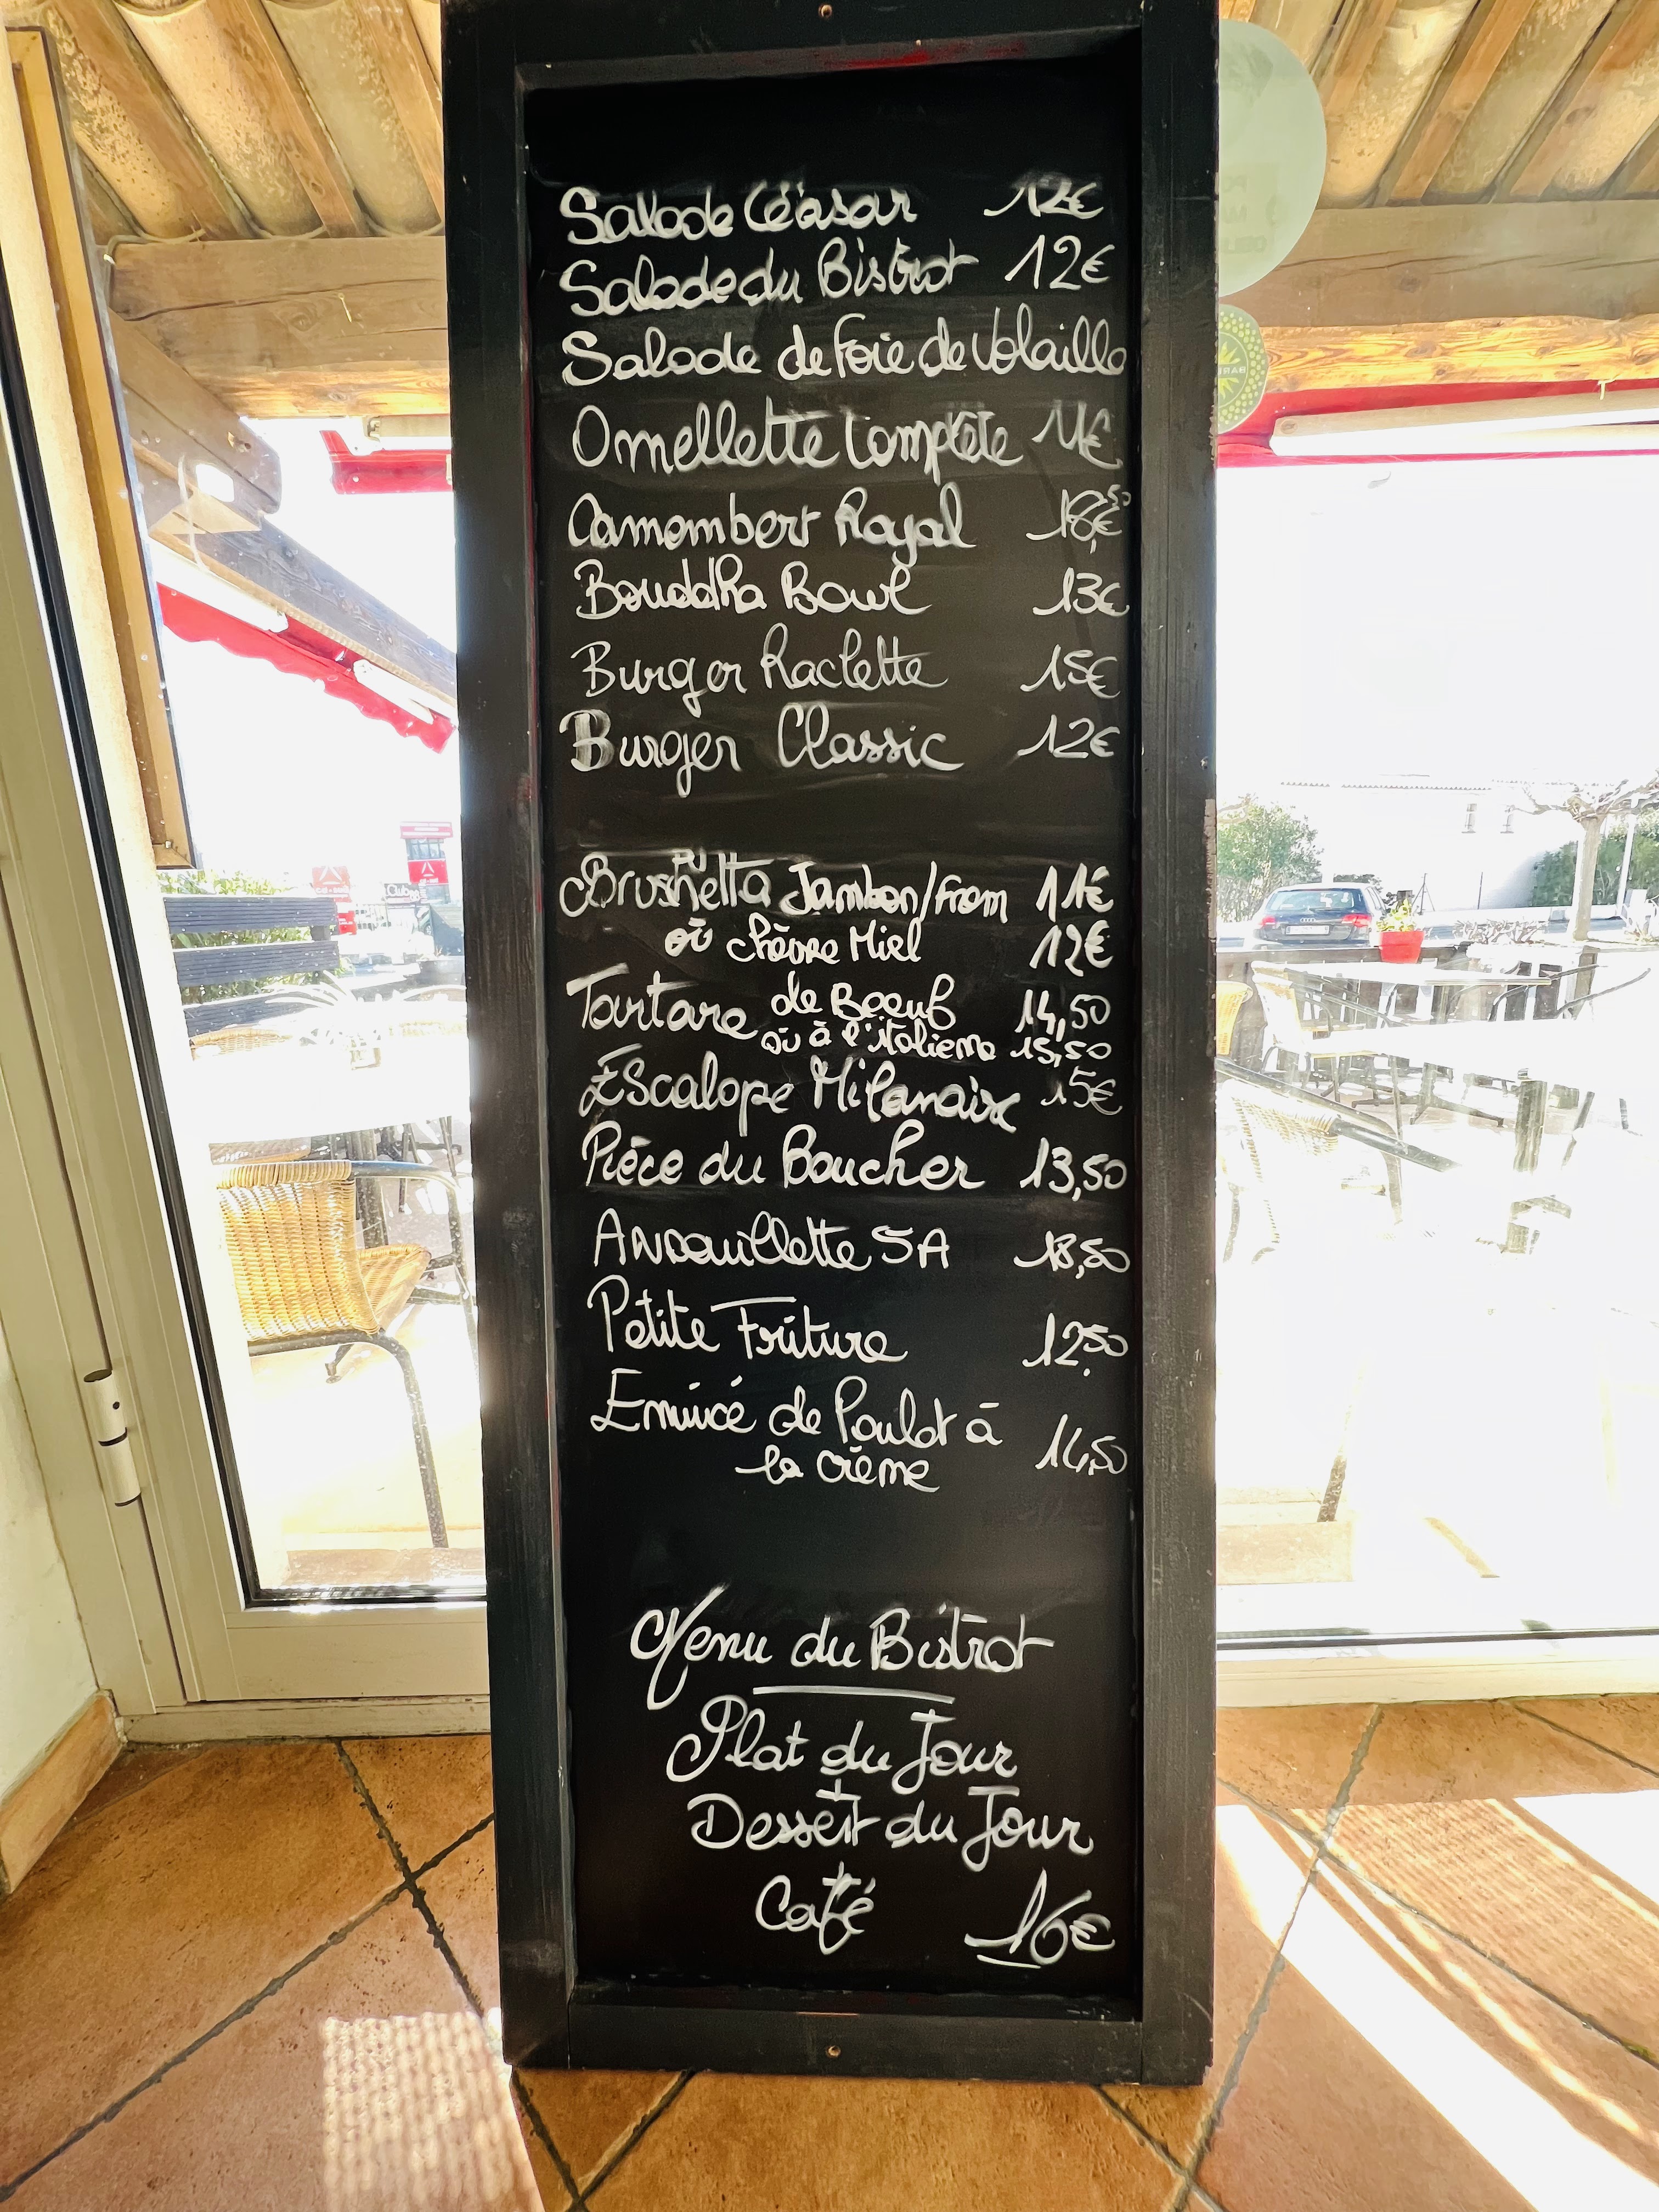 Salade Céasar 12€
Salade du Bistrot 12€
Salade de Foie de Volaille
Omellette Complète 11€
Camembert Royal
Bouddha Bowl 13€
Burger Raclette 15€
Burger Classic 12€
Brushetta Jambon/From 11€
où Chèvre Miel 12€
Tartare de Boeuf 14,50
où à l'italienne 15,50
Escalope Milanaise 15€
Pièce du Boucher 13,50
Andouillette 5A 18,50
Petite Friture 12.50
Emincé de Poulet à
la crème 14,50
Menu du Bistrot
Plat du Jour
+
Dessert du Jour
+
Café 16€